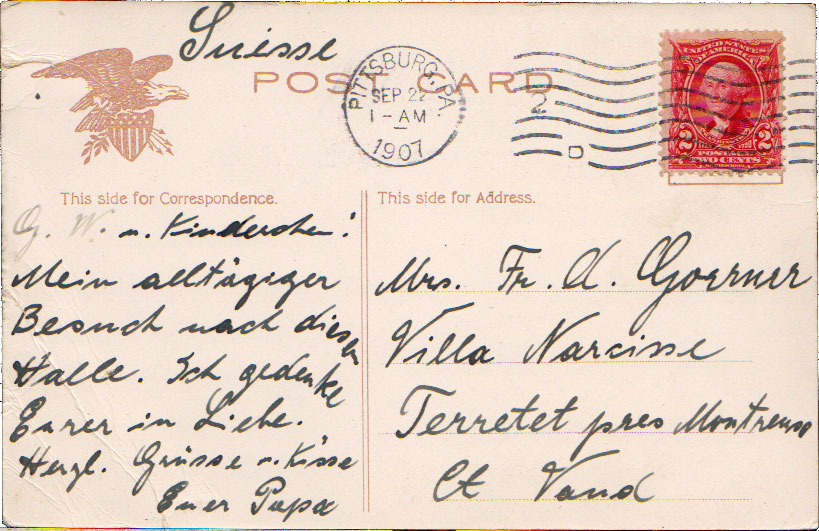 Suisse
POST CARD
PITTSBURG, PA.
SEP 22
1-AM
1907
2
D
UNITED STATES
OF AMERICA
2 2
POSTAGE
TWO CENTS
This side for Correspondence.
This side for Address.
G. W. u. Kinderchen!
Mein alltägiger
Besuch nach dieser
Halle. Ich gedenke
Eurer in Liebe.
Herzl. Grüsse u. Küsse
Euer Papa
Mrs. Fr. A. Goerner
Villa Narcisse
Terretet pres Montreux
Ct Vaud